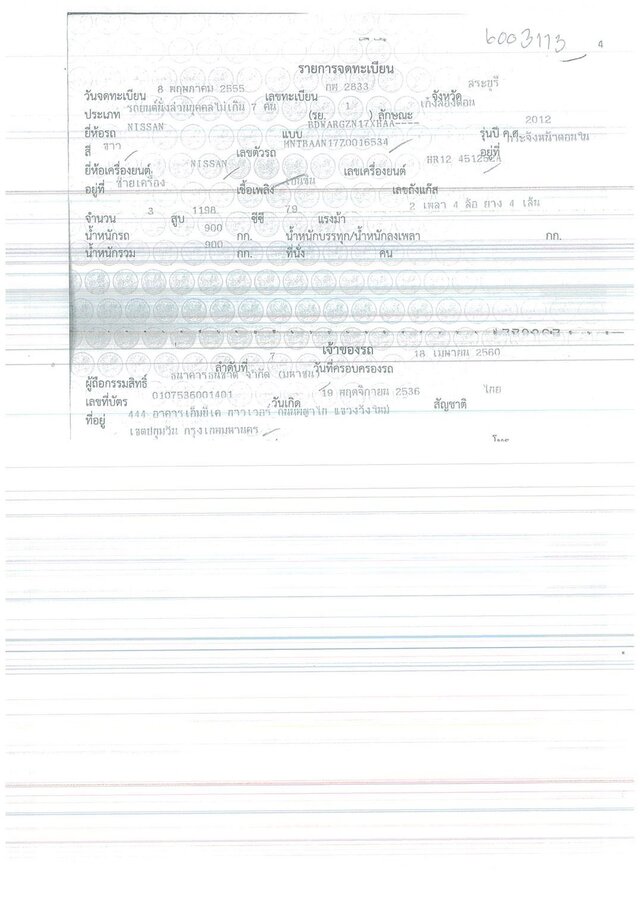 6003113
4
รายการจดทะเบียน
วันจดทะเบียน 8 พฤษภาคม 2555 เลขทะเบียน กพ 2833 จังหวัด สระบุรี
ประเภท รถยนต์นั่งส่วนบุคคลไม่เกิน 7 คน (รย. 1 ) ลักษณะ เก๋งสองตอน
ยี่ห้อรถ NISSAN แบบ BDWARGZN17XHAA---- รุ่นปี ค.ศ. 2012
สี ขาว เลขตัวรถ MNTBAAN17Z0016534 อยู่ที่ กระจังหน้าตอนใน
ยี่ห้อเครื่องยนต์ NISSAN เลขเครื่องยนต์ HR12 451252A
อยู่ที่ ซ้ายเครื่อง เชื้อเพลิง เบนซิน เลขถังแก๊ส
จำนวน 3 สูบ 1198 ซีซี 79 แรงม้า 2 เพลา 4 ล้อ ยาง 4 เส้น
น้ำหนักรถ 900 กก. น้ำหนักบรรทุก/น้ำหนักลงเพลา กก.
น้ำหนักรวม 900 กก. ที่นั่ง คน
เจ้าของรถ
ลำดับที่ 7 วันที่ครอบครองรถ 18 เมษายน 2560
ผู้ถือกรรมสิทธิ์ ธนาคารธนชาต จำกัด (มหาชน)
เลขที่บัตร 0107536001401 วันเกิด 19 พฤศจิกายน 2536 สัญชาติ ไทย
ที่อยู่ 444 อาคารเอ็มบีเค ทาวเวอร์ ถนนพญาไท แขวงวังใหม่
เขตปทุมวัน กรุงเทพมหานคร